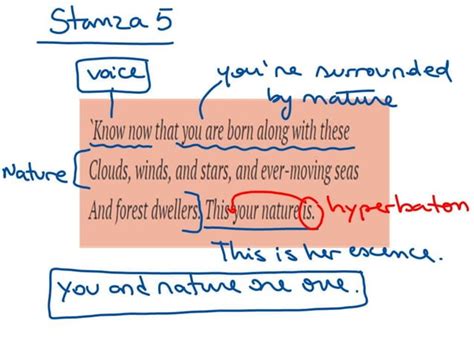 Stanza 5
voice
you're surrounded
by nature
'Know now that you are born along with these
Nature
Clouds, winds, and stars, and ever-moving seas
And forest dwellers. This your nature is.
hyperbaton
This is her escence.
you and nature are one.